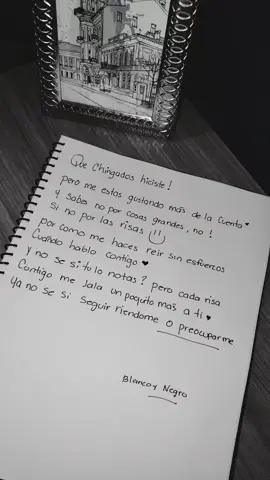 Que Chingados hiciste!
pero me estas gustando más de la cuenta ♥
y sabes no por cosas grandes, no !
Si no por las risas
por como me haces reir sin esfuerzos
Cuando hablo contigo ♥
y no se si tu lo notas? pero cada risa
Contigo me jala un poquito mas a ti ♥
Ya no se si seguir riendome o preocuparme
Blanco y Negro